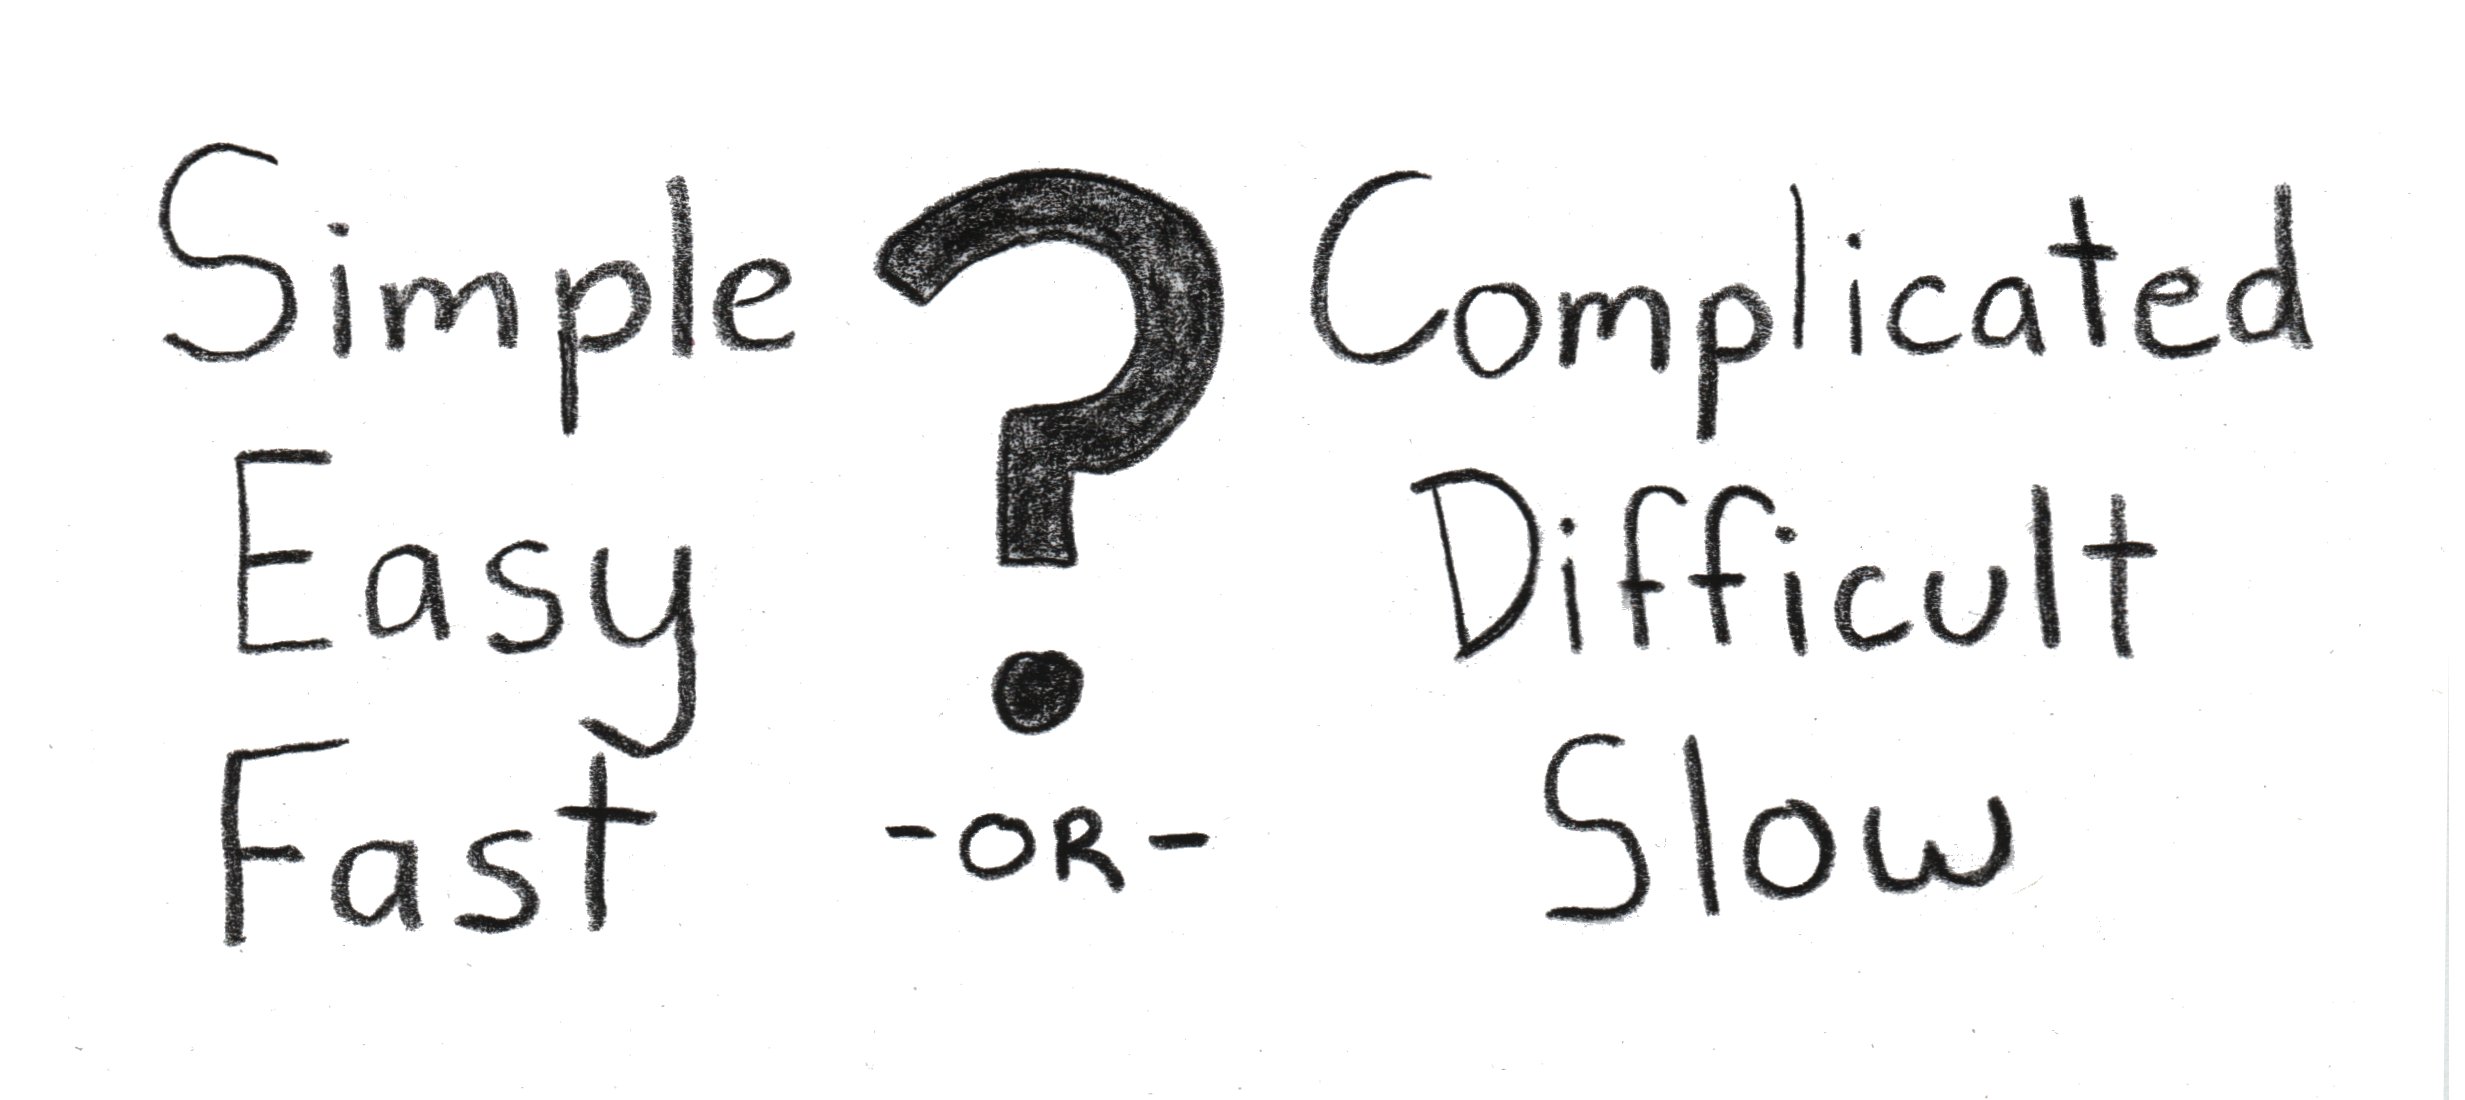 Simple
Easy
Fast
?
-OR-
Complicated
Difficult
Slow